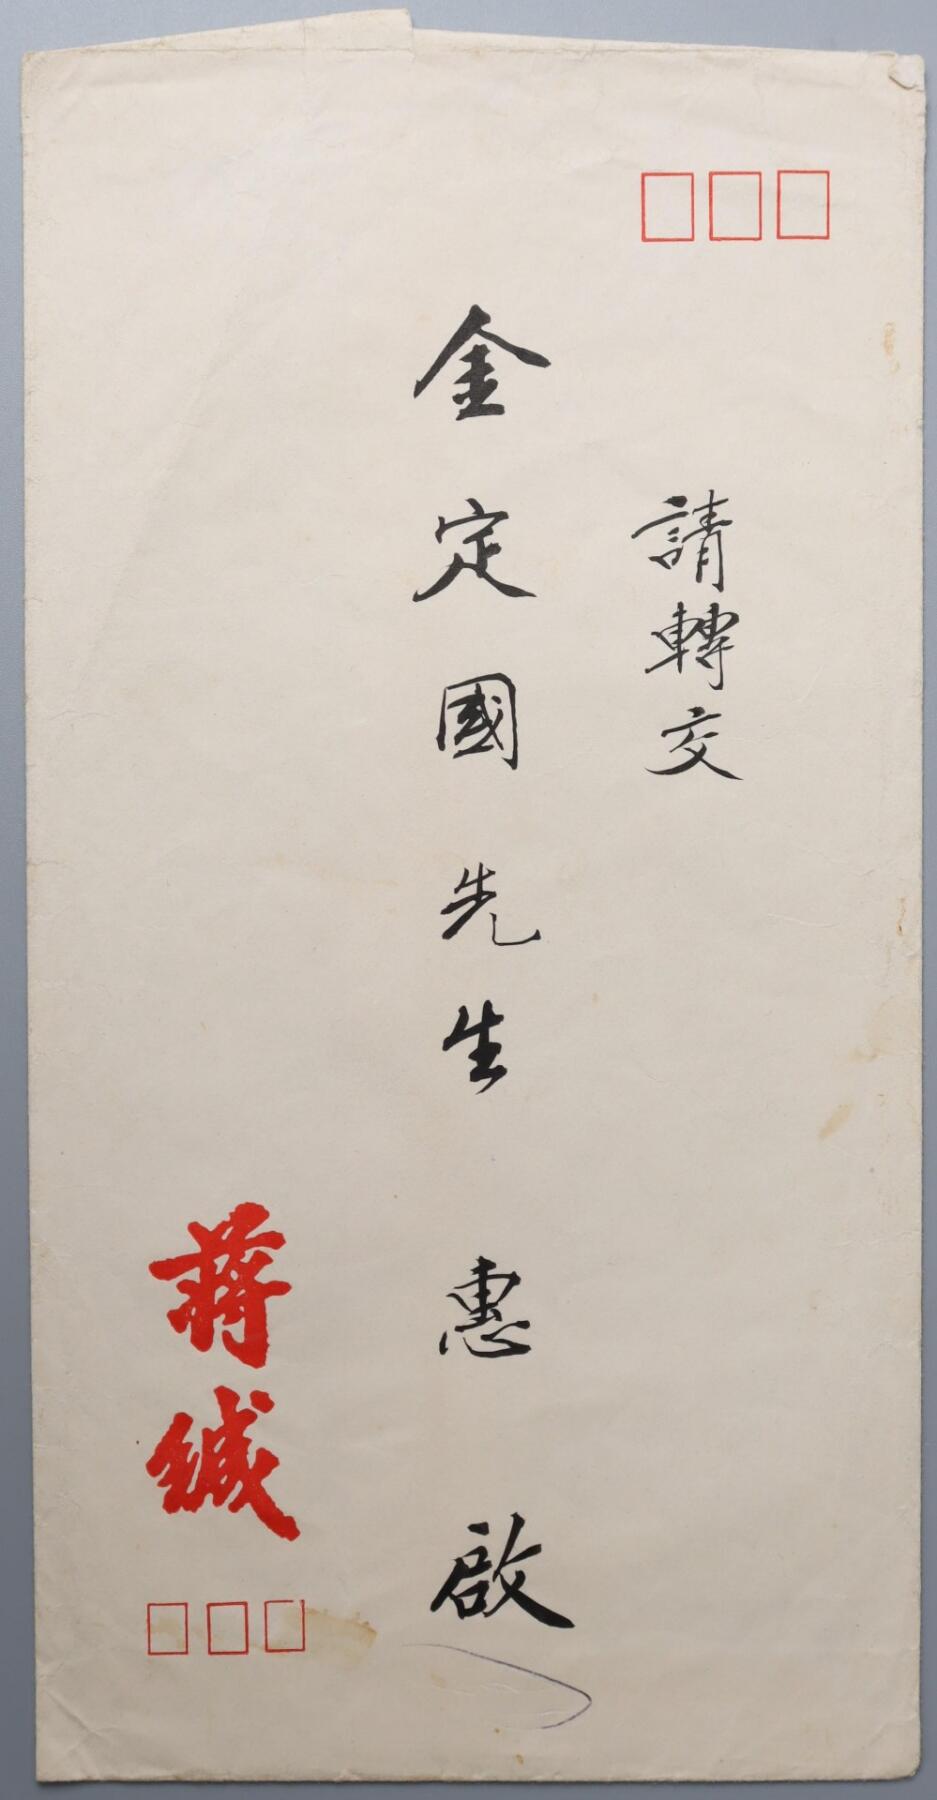 請轉交
金定國先生 惠 啟
蔣緘